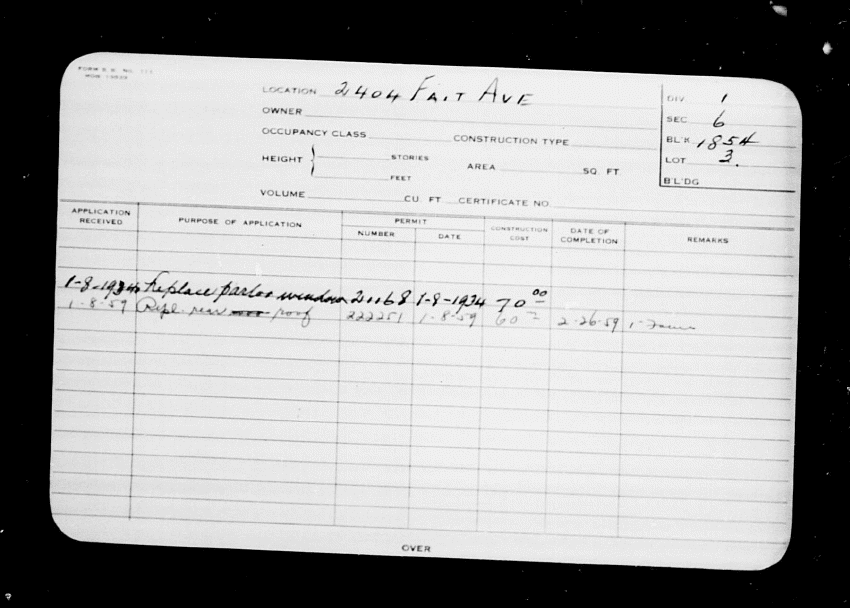 FORM B.B. NO.
LOCATION 2404 FAIT AVE
OWNER
OCCUPANCY CLASS CONSTRUCTION TYPE
HEIGHT } STORIES AREA SQ. FT
FEET
VOLUME CU. FT CERTIFICATE NO.
DIV. 1
SEC 6
BL'K. 1854
LOT 3.
B'L'DG
APPLICATION RECEIVED PURPOSE OF APPLICATION PERMIT NUMBER DATE CONSTRUCTION COST DATE OF COMPLETION REMARKS
1-8-1934 Replace parlor window 21168 1-8-1934 70 00
1-8-59 Repl. rear roof 222251 1-8-59 60 2-26-59
OVER